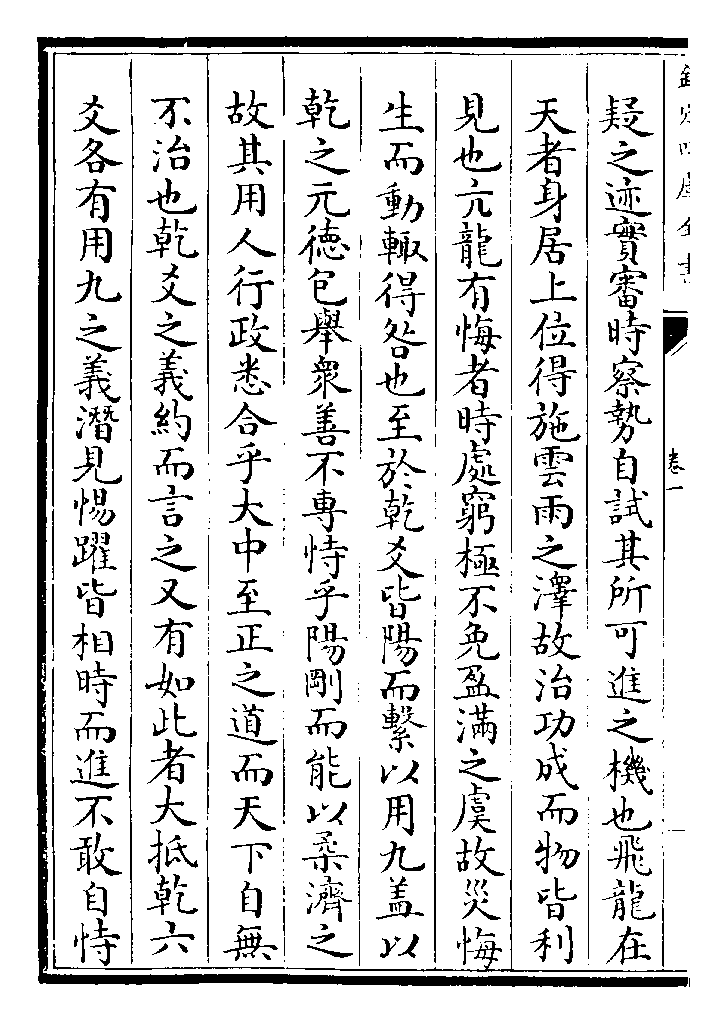 欽定四庫全書
卷一
疑之迹實審時察勢自試其所可進之機也飛龍在
天者身居上位得施雲雨之澤故治功成而物皆利
見也亢龍有悔者時處窮極不免盈滿之虞故災悔
生而動輙得咎也至於乾爻皆陽而繫以用九盖以
乾之元德包舉衆善不專恃乎陽剛而能以柔濟之
故其用人行政悉合乎大中至正之道而天下自無
不治也乾爻之義約而言之又有如此者大抵乾六
爻各有用九之義潛見惕躍皆相時而進不敢自恃